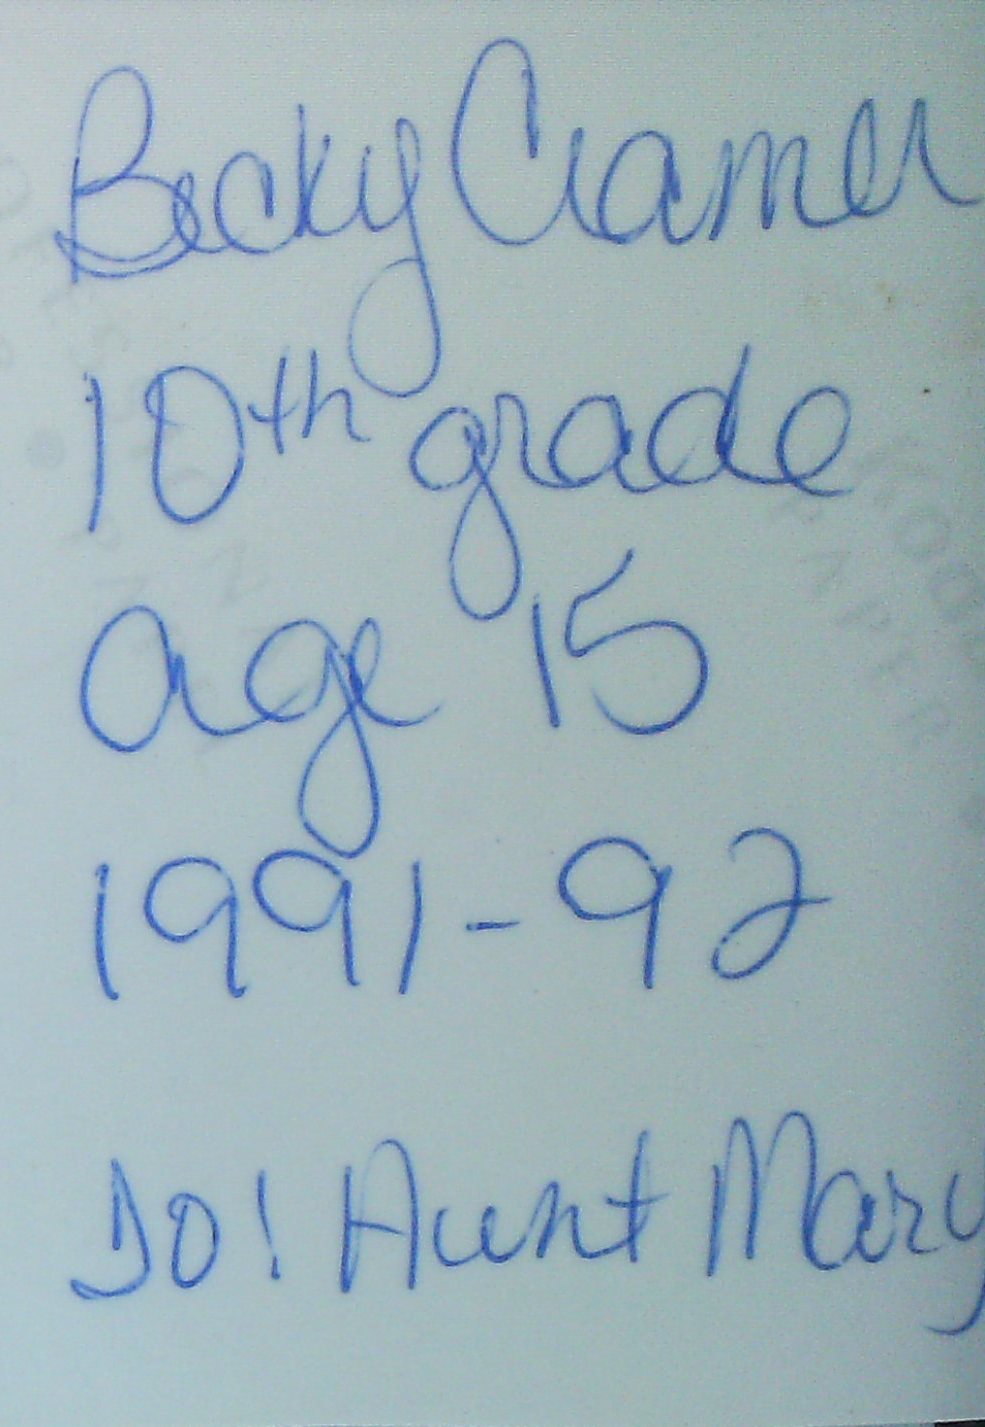 Becky Cramer
10th grade
age 15
1991-92
To! Aunt Mary